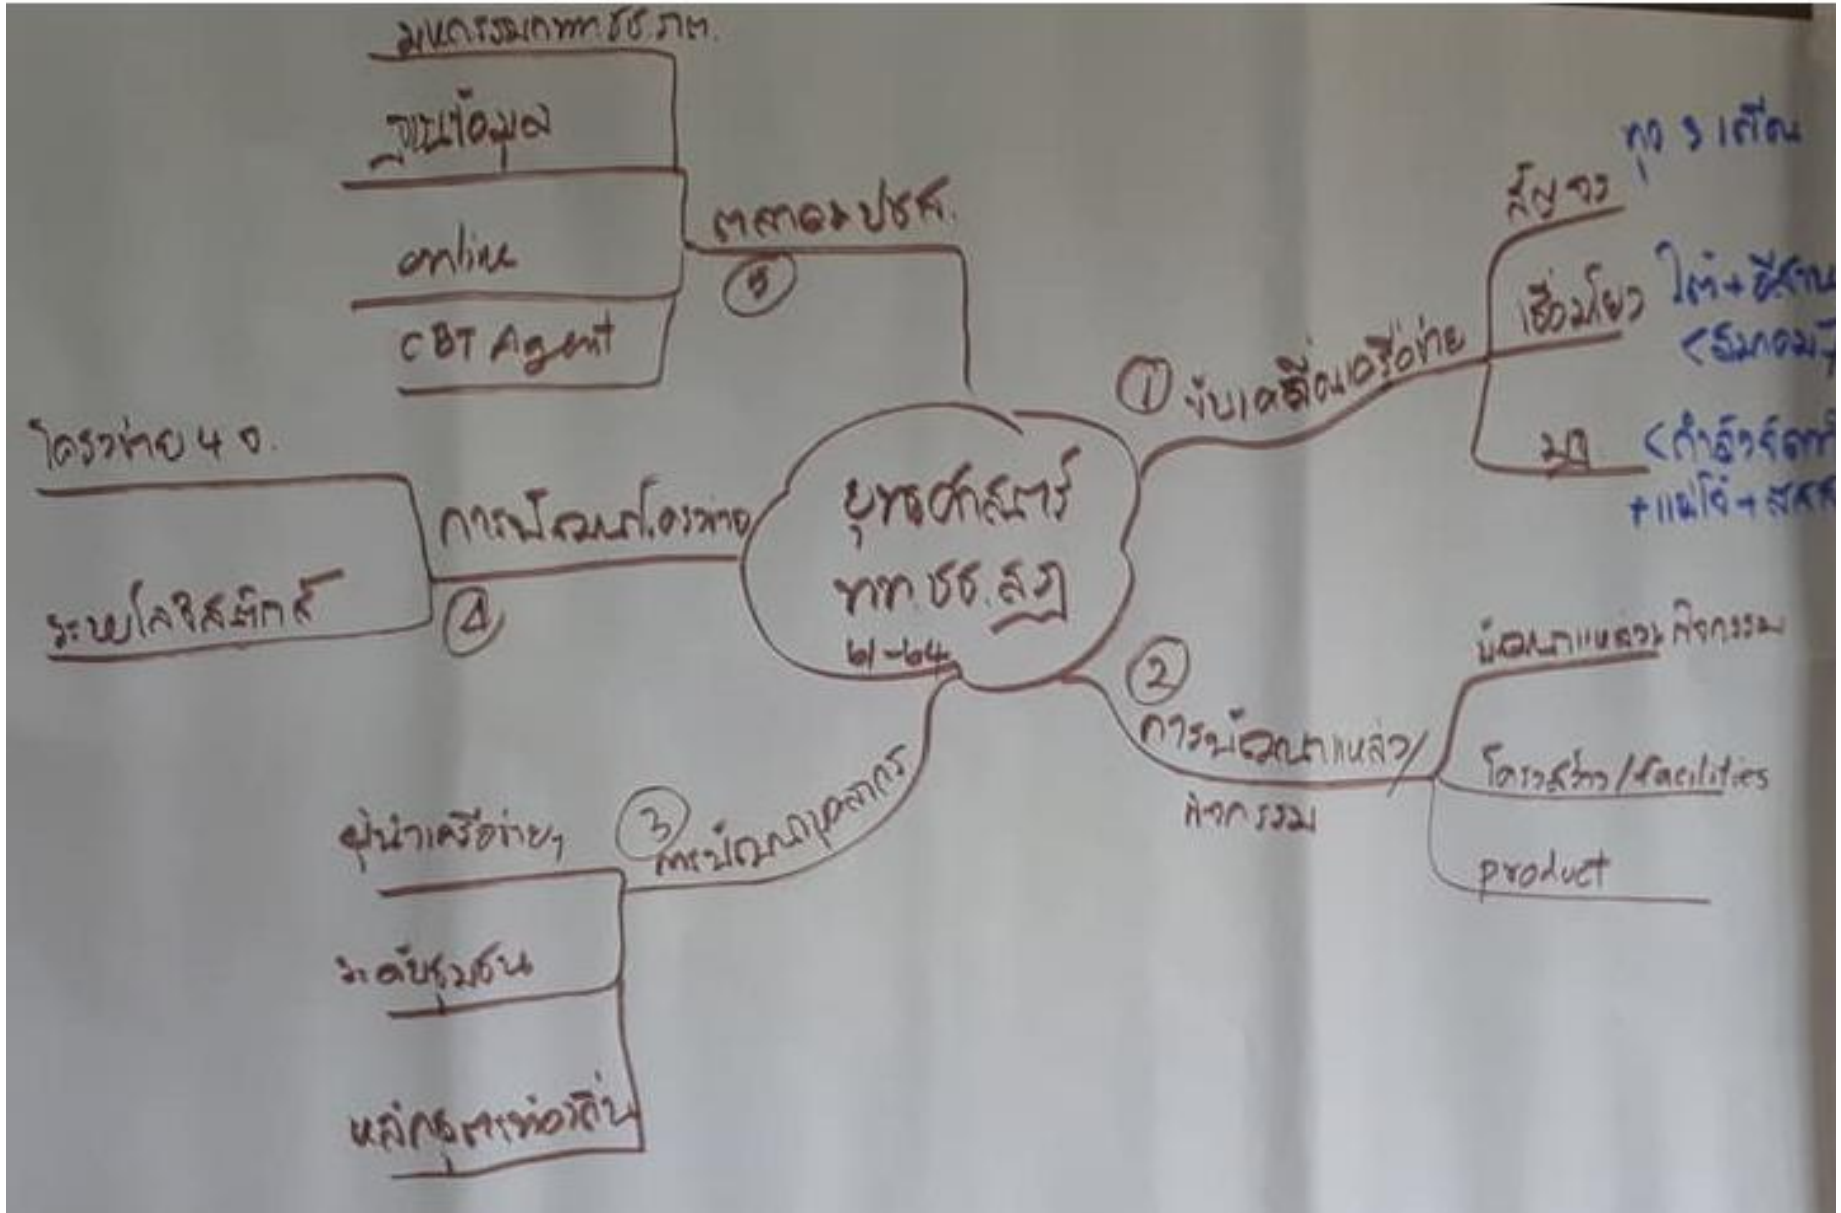 ยุทธศาสตร์
ทท.ชช.สฎ
61-64
① ขับเคลื่อนเครือข่าย
สัญจร ทุก 3 เดือน
เชื่อมโยง ใต้+อีสาน
<สมาคมฯ
+แม่โจ้+
②
การพัฒนาแหล่ง/
กิจกรรม
พัฒนาแหล่ง กิจกรรม
โครงสร้าง/facilities
product
③ การพัฒนาบุคลากร
ผู้นำเครือข่ายฯ
ระดับชุมชน
หลักสูตรท้องถิ่น
การพัฒนาโครงข่าย
④
โครงข่าย 4 จ.
ระบบโลจิสติกส์
ตลาด ปชส.
⑤
มหกรรมกททชช.ภต.
ฐานข้อมูล
online
CBT Agent